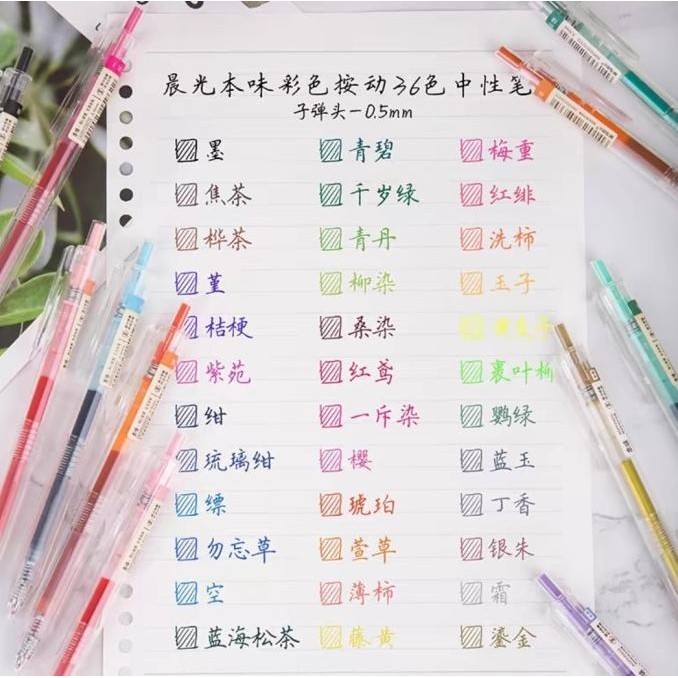 晨光本味彩色按动36色中性笔
子弹头-0.5mm
墨 青碧 梅重
焦茶 千岁绿 红绯
桦茶 青丹 洗柿
堇 柳染 玉子
桔梗 桑染
紫苑 红鸢 裹叶柳
绀 一斥染 鹦绿
琉璃绀 樱 蓝玉
缥 琥珀 丁香
勿忘草 萱草 银朱
空 薄柿 霜
蓝海松茶 藤黄 鎏金